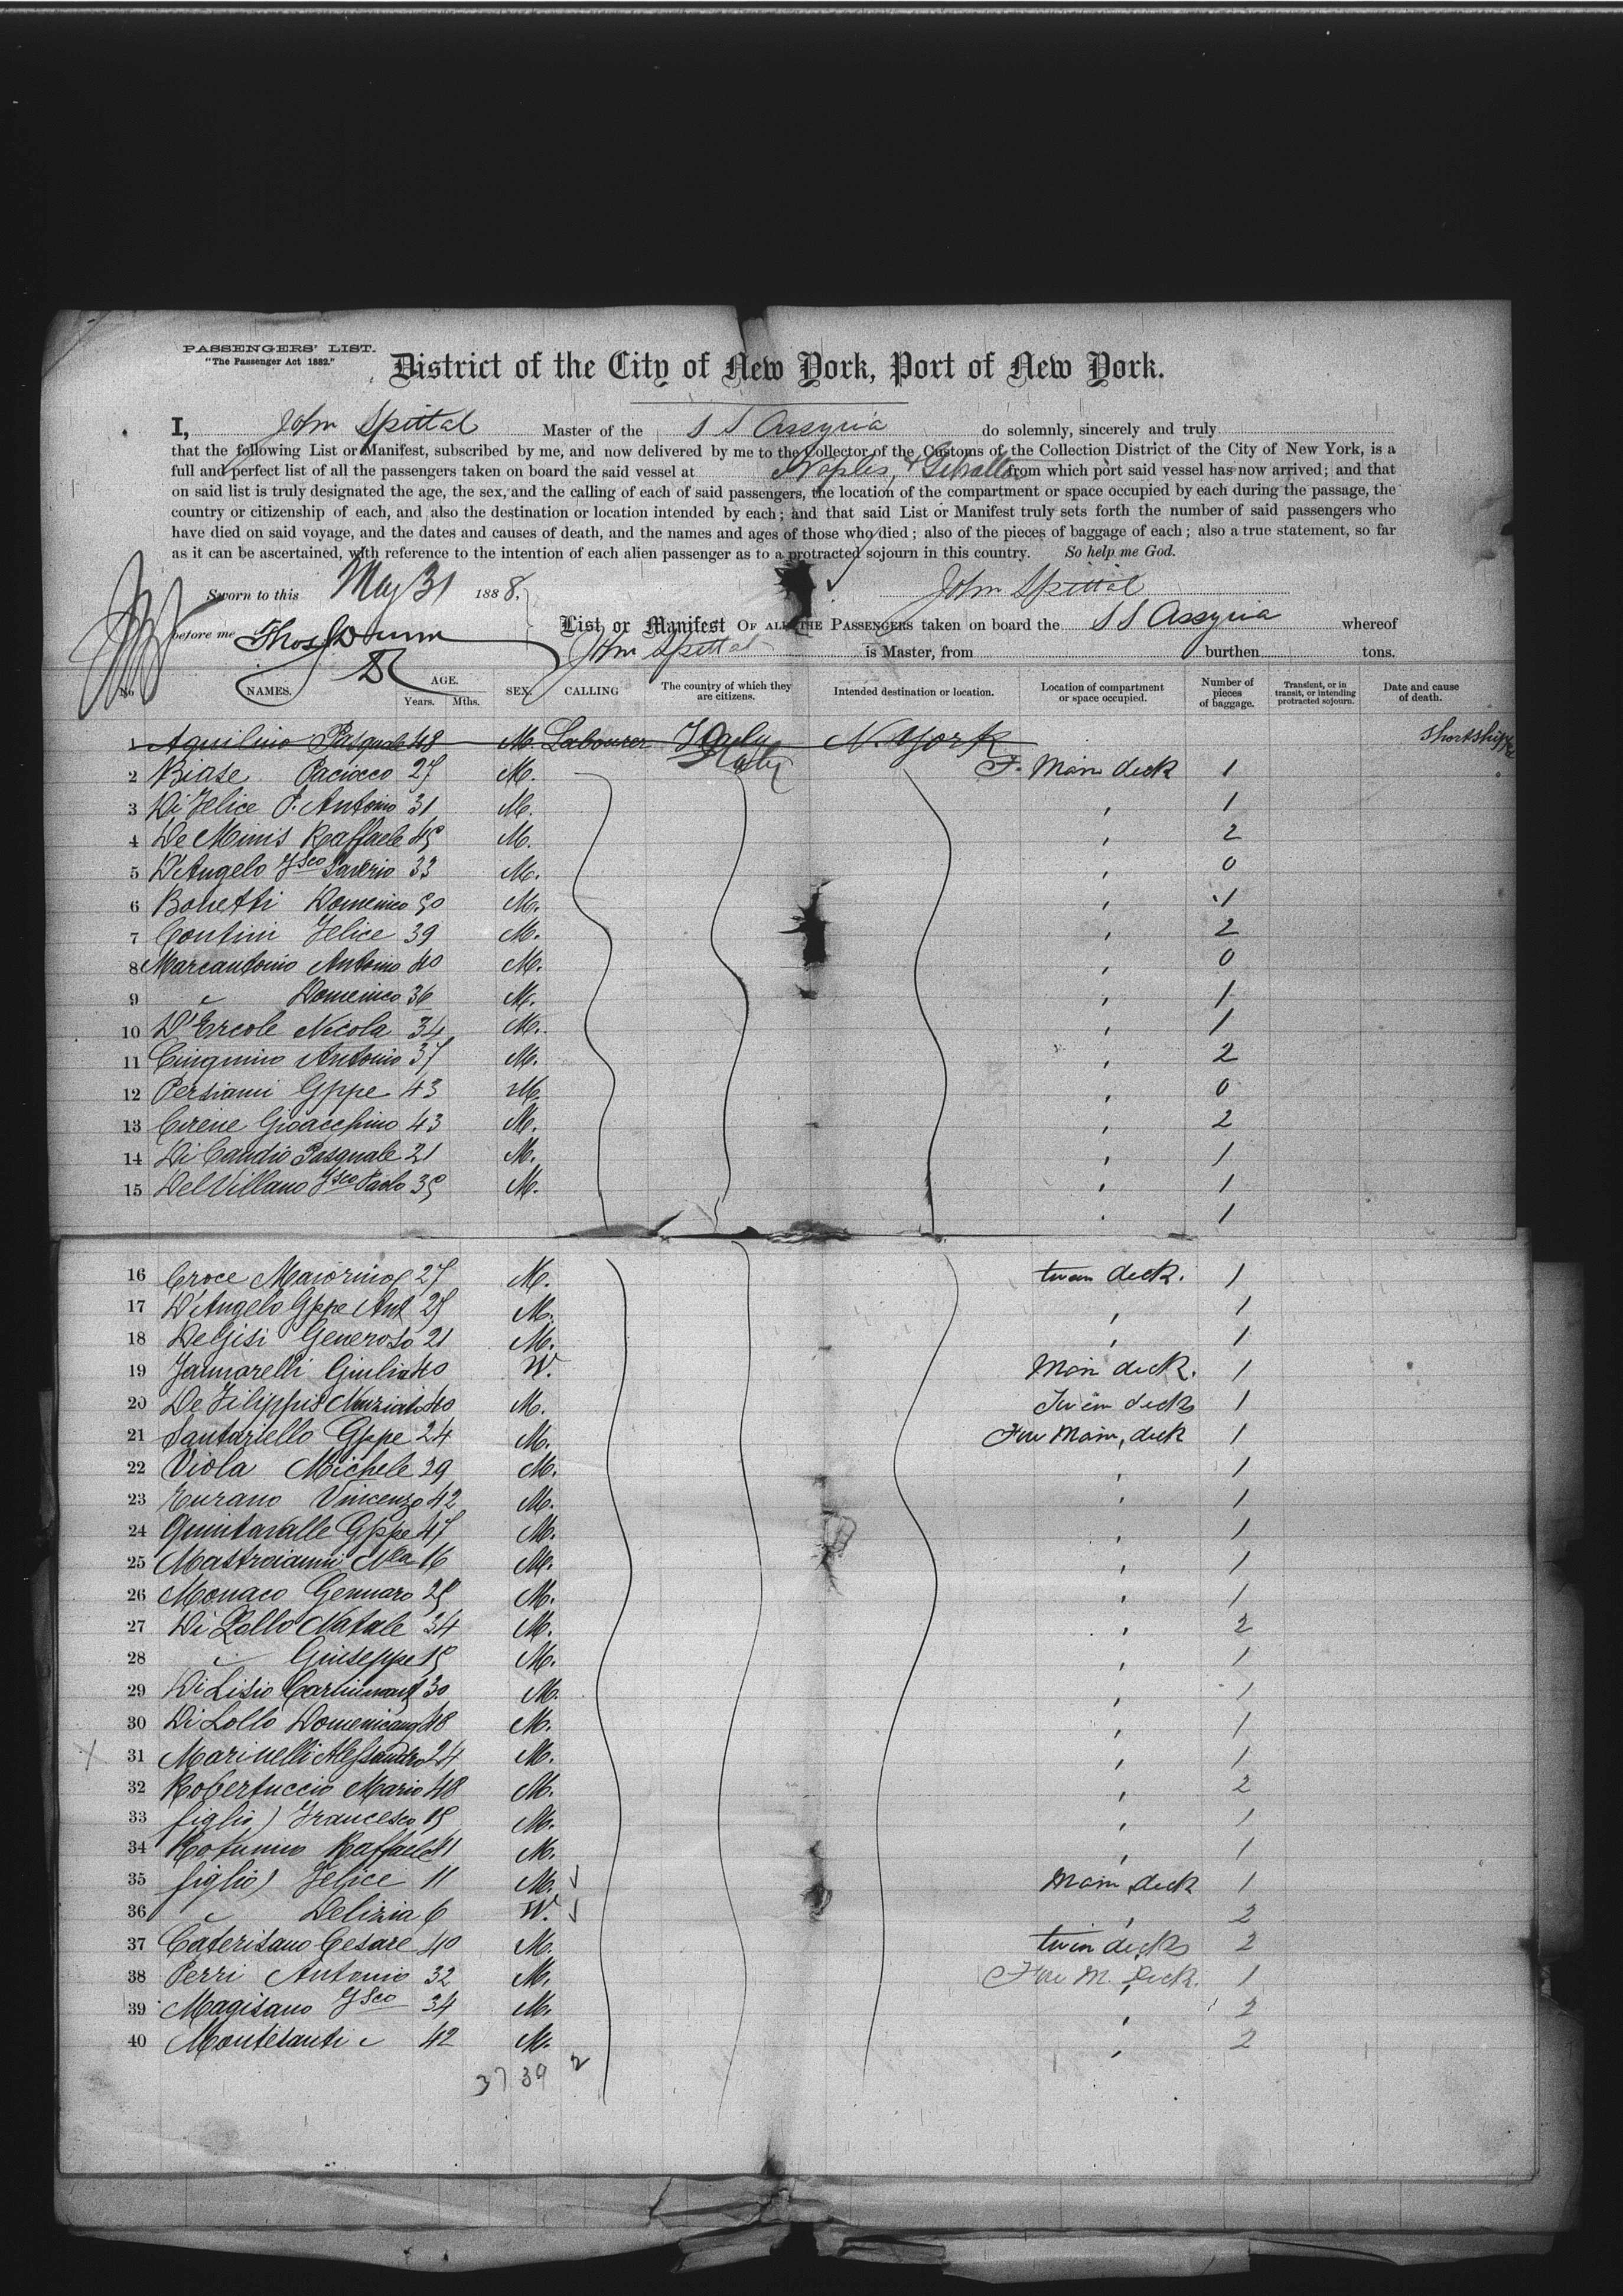 PASSENGERS' LIST.
"The Passenger Act 1882."
District of the City of New York, Port of New York.
I, John Spittal Master of the S S Assyria do solemnly, sincerely and truly
that the following List or Manifest, subscribed by me, and now delivered by me to the Collector of the Customs of the Collection District of the City of New York, is a
full and perfect list of all the passengers taken on board the said vessel at Naples, & Gibraltar from which port said vessel has now arrived; and that
on said list is truly designated the age, the sex, and the calling of each of said passengers, the location of the compartment or space occupied by each during the passage, the
country or citizenship of each, and also the destination or location intended by each; and that said List or Manifest truly sets forth the number of said passengers who
have died on said voyage, and the dates and causes of death, and the names and ages of those who died; also of the pieces of baggage of each; also a true statement, so far
as it can be ascertained, with reference to the intention of each alien passenger as to a protracted sojourn in this country. So help me God.
Sworn to this May 31 1888, John Spittal
before me Thos Dunn List or Manifest OF ALL THE PASSENGERS taken on board the S S Assyria whereof
John Spittal is Master, from burthen tons.
No NAMES. AGE. Years. Mths. SEX. CALLING The country of which they are citizens. Intended destination or location. Location of compartment or space occupied. Number of pieces of baggage. Transient, or in transit, or intending protracted sojourn. Date and cause of death.
1 Aquilino Pasquale 48 M. Labourer Italy N. York Shortshipped
2 Biase Paciocco 27 M. Italy F. Main deck 1
3 Di Felice P. Antonio 31 M. , 1
4 De Minis Raffaele 45 M. , 2
5 D'Angelo Fsco Saverio 33 M. , 0
6 Bonetti Domenico 50 M. , 1
7 Contini Felice 39 M. , 2
8 Marcantonio Antonio 40 M. , 0
9 " Domenico 36 M. , 1
10 D'Ercole Nicola 34 M. , 1
11 Cinquino Antonio 37 M. , 2
12 Persiani Gppe 43 M. , 0
13 Cirene Gioacchino 43 M. , 2
14 Di Candio Pasquale 21 M. , 1
15 Del Villano Fsco Paolo 35 M. , 1
, 1
16 Croce Maiorino 27 M. twen deck. 1
17 D'Angelo Gppe Ant 25 M. , 1
18 De Gisi Generoso 21 M. , 1
19 Jannarelli Giulia 40 W. Main deck. 1
20 De Filippis Nunziato 40 M. Twen decks 1
21 Santariello Gppe 24 M. Fore Main, deck 1
22 Viola Michele 29 M. , 1
23 Turano Vincenzo 42 M. , 1
24 Quintavalle Gppe 47 M. , 1
25 Mastroianni Nla 16 M. , 1
26 Monaco Gennaro 25 M. , 1
27 Di Lollo Natale 34 M. , 2
28 " Giuseppe 15 M. , 1
29 Di Lisio 30 M. , 1
30 Di Lollo Domenicang 48 M. , 1
31 Marinelli Alessandro 24 M. , 1
32 Robertuccio Mario 48 M. , 2
33 figlio) Francesco 15 M. , 1
34 Rotunno Raffaele 41 M. , 1
35 figlio) Felice 11 M. Main deck 1
36 " Delizia 6 W. , 2
37 Caterisano Cesare 40 M. twen decks 2
38 Perri Antonio 32 M. Fore M. Deck. 1
39 Magisano Fsco 34 M. , 2
40 Montesanti " 42 M. , 2
37 39 2